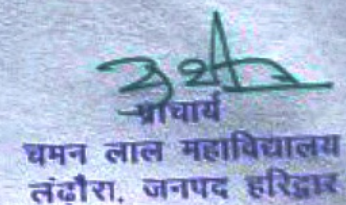 प्राचार्य
चमन लाल महाविद्यालय
लंढौरा, जनपद हरिद्वार